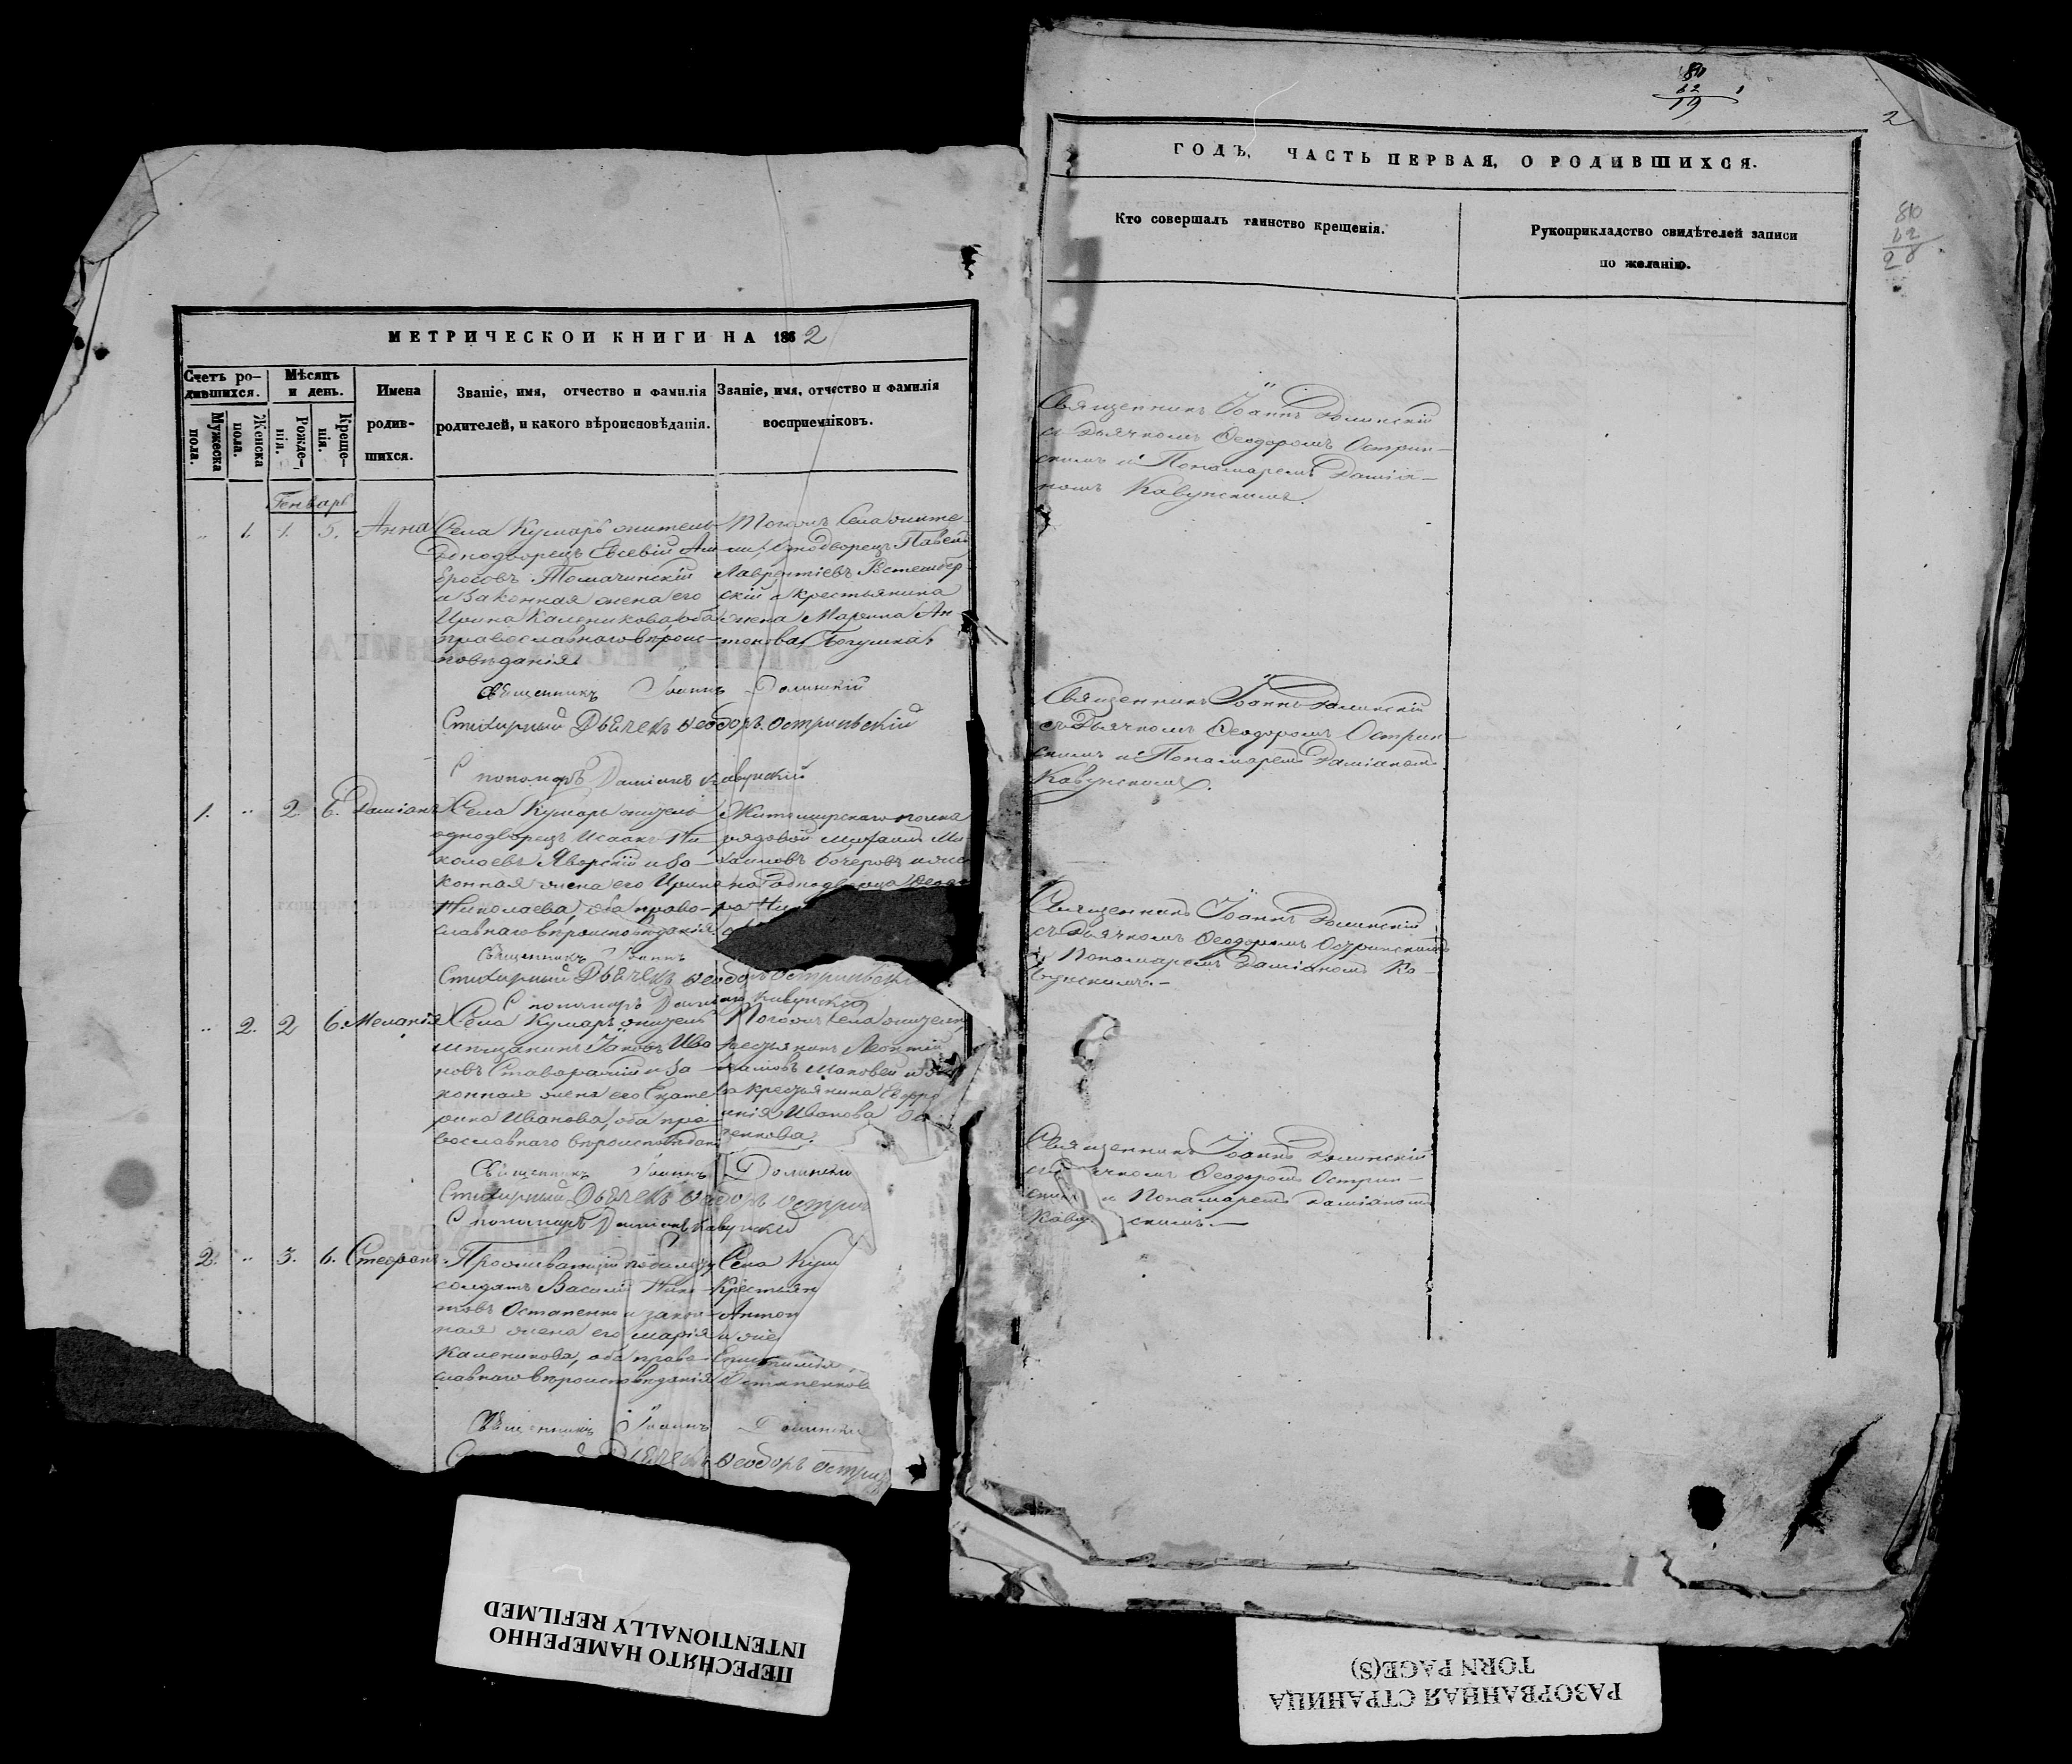 МЕТРИЧЕСКОЙ КНИГИ НА 1862
Счетъ ро-
дившихся.
Мѣсяцъ
и день.
Мужеска
пола.
Женска
пола.
Рожде-
нія.
Креще-
нія.
Имена
родив-
шихся.
Званіе, имя, отчество и фамилія
родителей, и какого вѣроисповѣданія.
Званіе, имя, отчество и фамилія
воспріемниковъ.
Генварь
" 1. 1. 5. Анна
Села Кумаръ житель
однодворецъ Евсевій Ам-
бросовъ Томачинскій
и законная жена его
Ирина Каленикова оба
православнаго вѣроис-
повѣданія
Тогожъ Села жите-
ли, однодворецъ Павелъ
Лаврентіевъ
скій и крестьянина
жена Марина Ан-
тонова
Священникъ Іоаннъ Долинскій
Стихарный Дьячекъ Ѳеодоръ Остриньскій
пономарь Даміанъ Кавунскій
1. " 2. 6. Даміанъ
Села Кумаръ житель
однодворецъ Исаакъ Ни-
колаевъ Яворскій и за-
конная жена его Ирина
Николаева, оба право-
славнаго вѣроисповѣданія
Житомирскаго полка
рядовой Михаилъ Ми-
хаиловъ Бочеровъ и же-
на однодворца
Священникъ Іоаннъ
Стихарный Дьячекъ Ѳеодоръ Остриньскій
пономарь Даміанъ Кавунскій
" 2. 2 6. Меланія
Села Кумаръ житель
мѣщанинъ Іаковъ Ива-
новъ и за-
конная жена его Екате-
рина Иванова, оба пра-
вославнаго вѣроисповѣдан
Тогожъ Села жители,
Леонтій
крестьянина
Иванова
Священникъ Іоаннъ Долински
Стихарный Дьячекъ Ѳеодоръ Острин
пономарь Даміанъ Кавунскій
2. " 3. 6. Стефанъ
Проживающій по билету
солдатъ Василій Ники-
товъ Остапенко и закон-
ная жена его Марія
Каленикова, оба право-
славнаго вѣроисповѣданія
Села Кум
Крестьян
Антон
и же
Остапенков
Священникъ Іоаннъ Долински
Дьячекъ Ѳеодоръ Острин
2
ГОДЪ, ЧАСТЬ ПЕРВАЯ, О РОДИВШИХСЯ.
Кто совершалъ таинство крещенія.
Рукоприкладство свидѣтелей записи
по желанію.
Священникъ Іоаннъ Долинскій
съ Дьячкомъ Ѳеодоромъ Острин-
скимъ и Пономаремъ Даміа-
номъ Кавунскимъ.
Священникъ Іоаннъ Долинскій
съ Дьячкомъ Ѳеодоромъ Острин-
скимъ и Пономаремъ Даміаномъ
Кавунскимъ.
Священникъ Іоаннъ Долинскій
съ Дьячкомъ Ѳеодоромъ Остринскимъ
и Пономаремъ Даміаномъ Ка-
вунскимъ.
Священникъ Іоаннъ Долинскій
ячкомъ Ѳеодоромъ Острин-
ским и Пономаремъ Даміаномъ
Каву скимъ.
ПЕРЕСНЯТО НАМЕРЕННО
INTENTIONALLY REFILMED
РАЗОРВАННАЯ СТРАНИЦА
TORN PAGE(S)